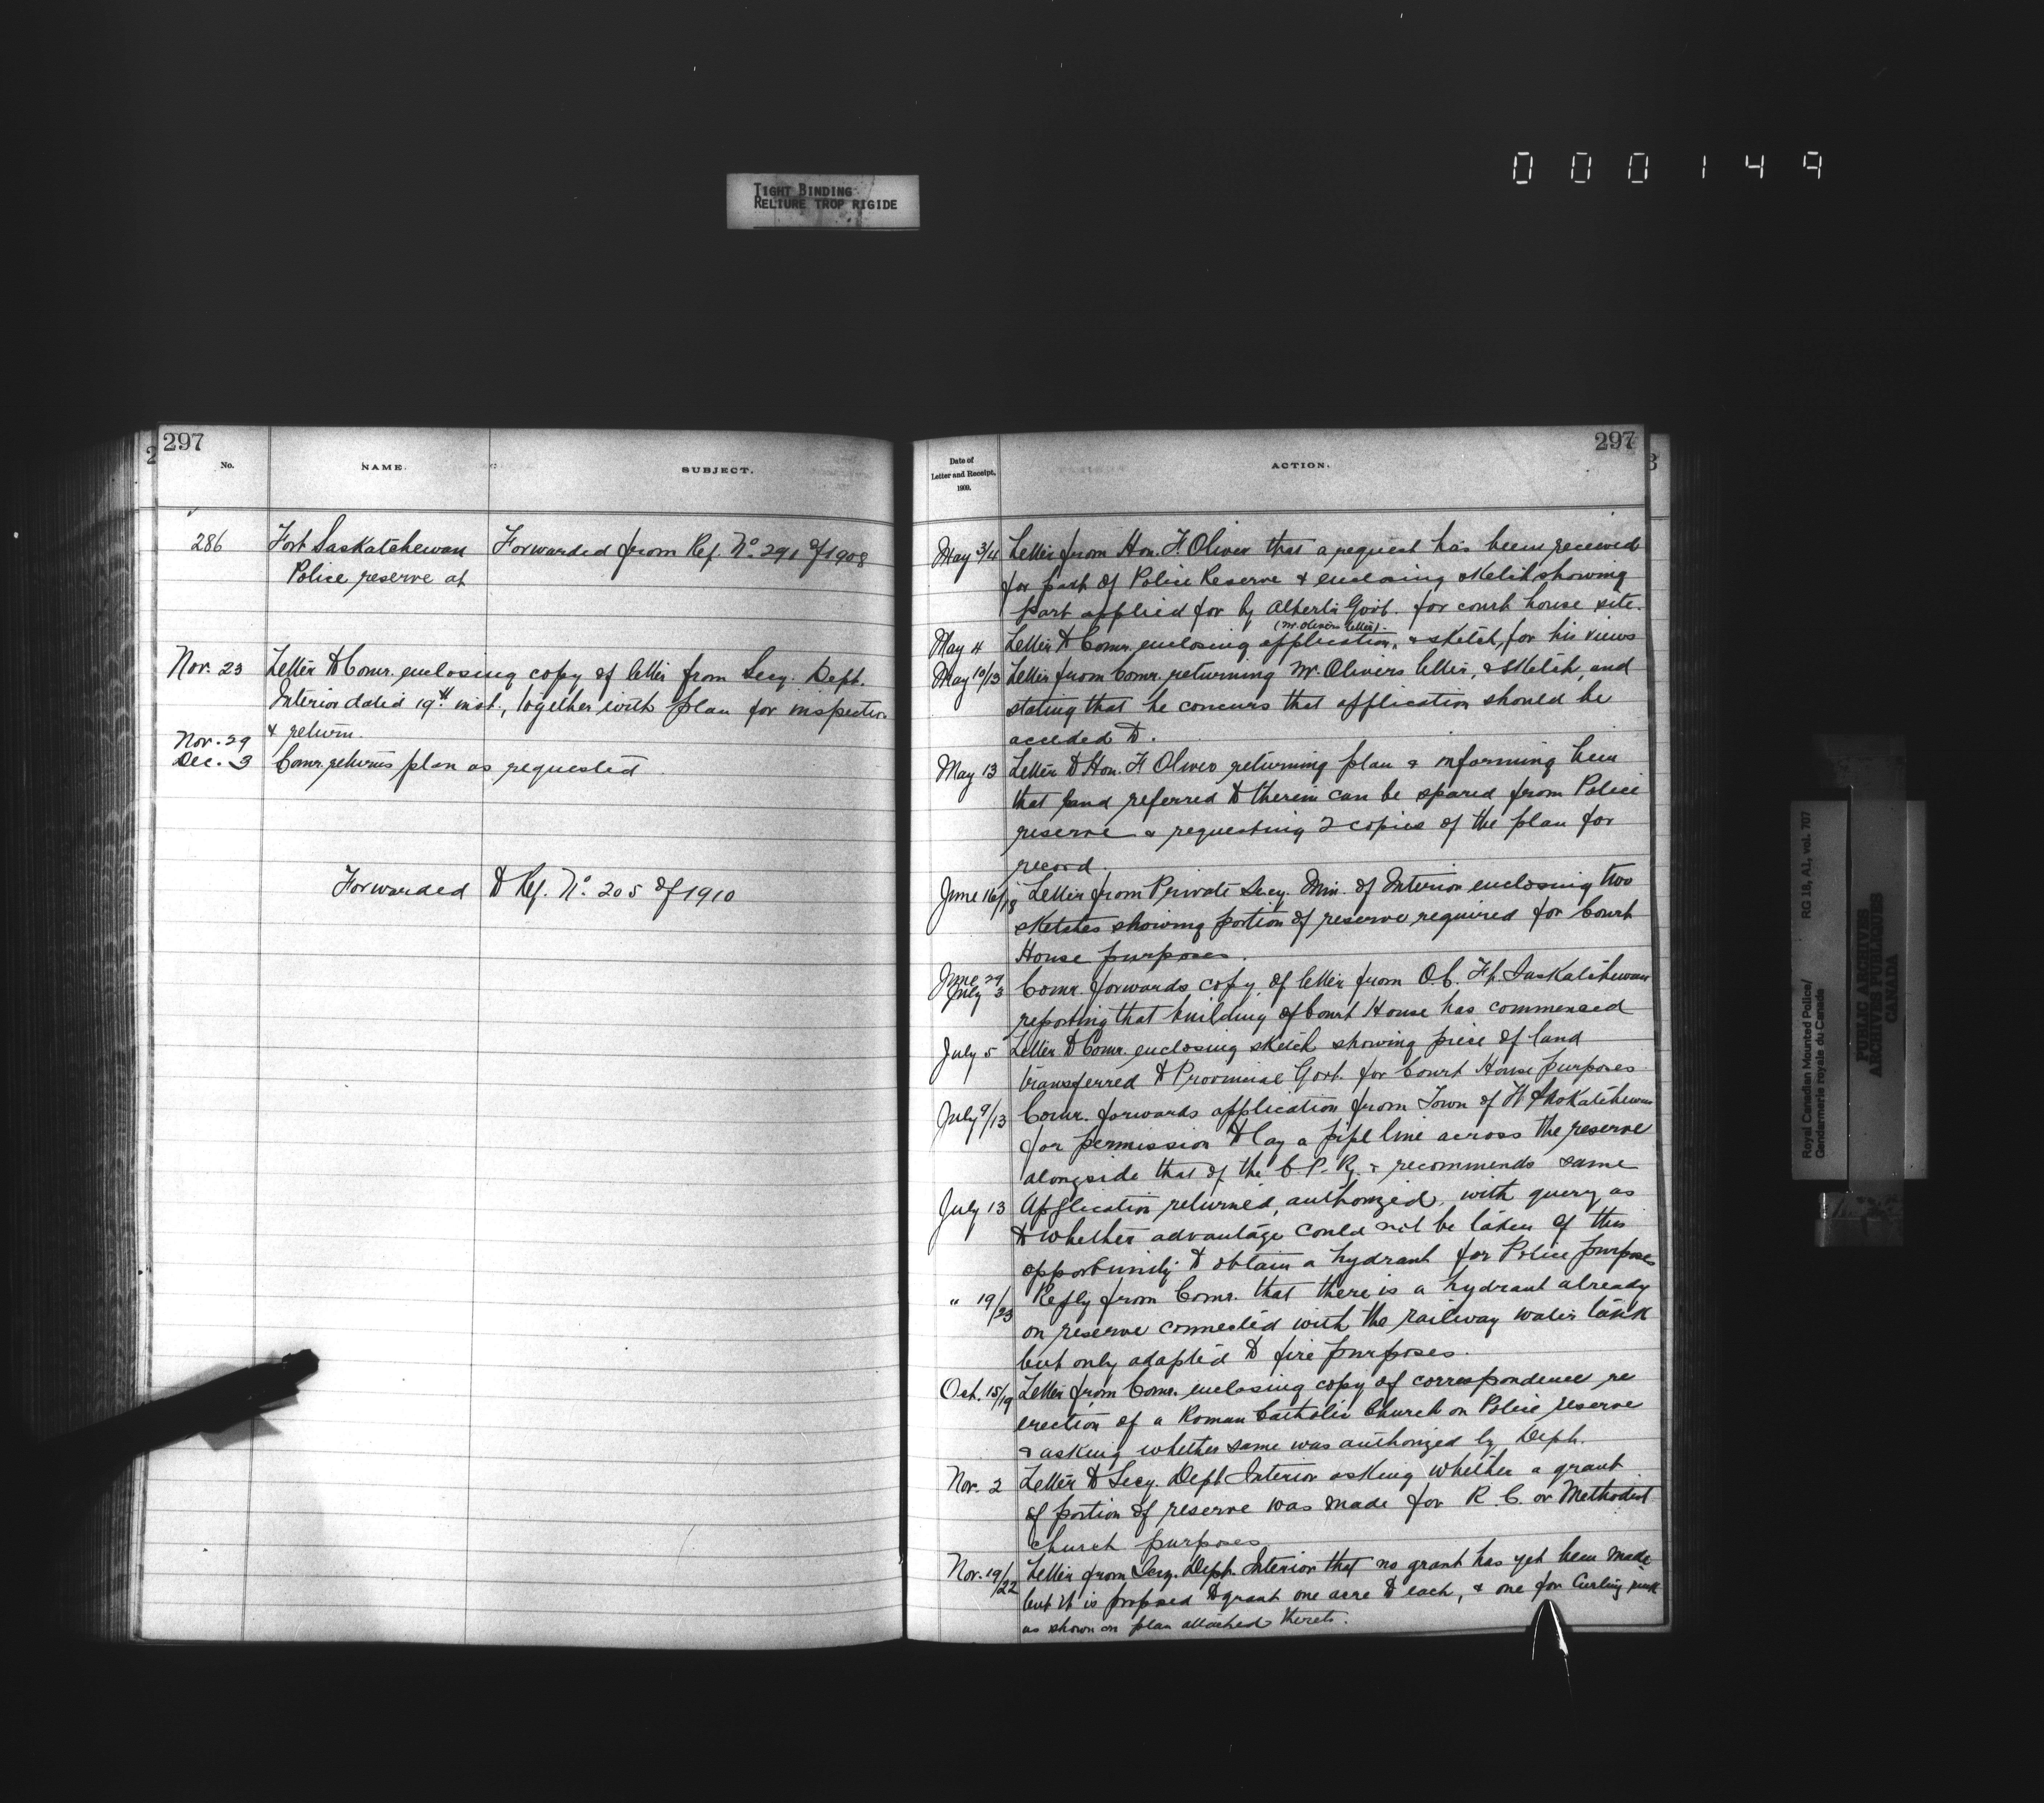 000149
TIGHT BINDING
RELIURE TROP RIGIDE
297
No.
NAME.
SUBJECT.
286
Fort Saskatchewan
Forwarded from Ref. No. 291 of 1908
Police reserve at
Nov. 23
Letter to Comr. enclosing copy of letter from Secy. Dept.
Interior dated 19th inst., together with plan for inspection
& return.
Nov. 29
Dec. 3
Comr. returns plan as requested
Forwarded to Ref. No. 205 of 1910
297
Date of
Letter and Receipt,
1909.
ACTION.
May 3/4 Letter from Hon. F. Oliver that a request has been received
for part of Police Reserve & enclosing sketch showing
part applied for by Alberta Govt. for court house site.
(Mr. Olivers letter)
May 4 Letter to Comr. enclosing application, & sketch, for his views
May 10/13 Letter from Comr. returning Mr. Olivers letter, & sketch, and
stating that he concurs that application should be
acceded to.
May 13 Letter to Hon. F. Oliver returning plan & informing him
that land referred to therein can be spared from Police
reserve & requesting 2 copies of the plan for
record.
June 16/18 Letter from Private Secy. Min. of Interior enclosing two
sketches showing portion of reserve required for Court
House purposes.
June 29
July 3
Comr. forwards copy of letter from O.C. Ft. Saskatchewan
reporting that building of Court House has commenced
July 5 Letter to Comr. enclosing sketch showing piece of land
transferred to Provincial Govt. for Court House purposes
July 9/13 Comr. forwards application from Town of Ft Saskatchewan
for permission to lay a pipe line across the reserve
alongside that of the C.P.R. & recommends same
July 13 Application returned, authorized, with query as
to whether advantage could not be taken of this
opportunity to obtain a hydrant for Police purposes
" 19/23 Reply from Comr. that there is a hydrant already
on reserve connected with the railway water tank
but only adapted to fire purposes.
Oct. 15/19 Letter from Comr. enclosing copy of correspondence re
erection of a Roman Catholic Church on Police reserve
& asking whether same was authorized by Dept.
Nov. 2 Letter to Secy. Dept Interior asking whether a grant
of portion of reserve was made for R.C. or Methodist
church purposes
Nov. 19/22 Letter from Secy. Dept. Interior that no grant has yet been made
but it is proposed to grant one acre to each, & one for Curling rink
as shown on plan attached thereto.
Royal Canadian Mounted Police/
Gendarmerie royale du Canada
RG 18, A1, vol. 707
PUBLIC ARCHIVES
ARCHIVES PUBLIQUES
CANADA